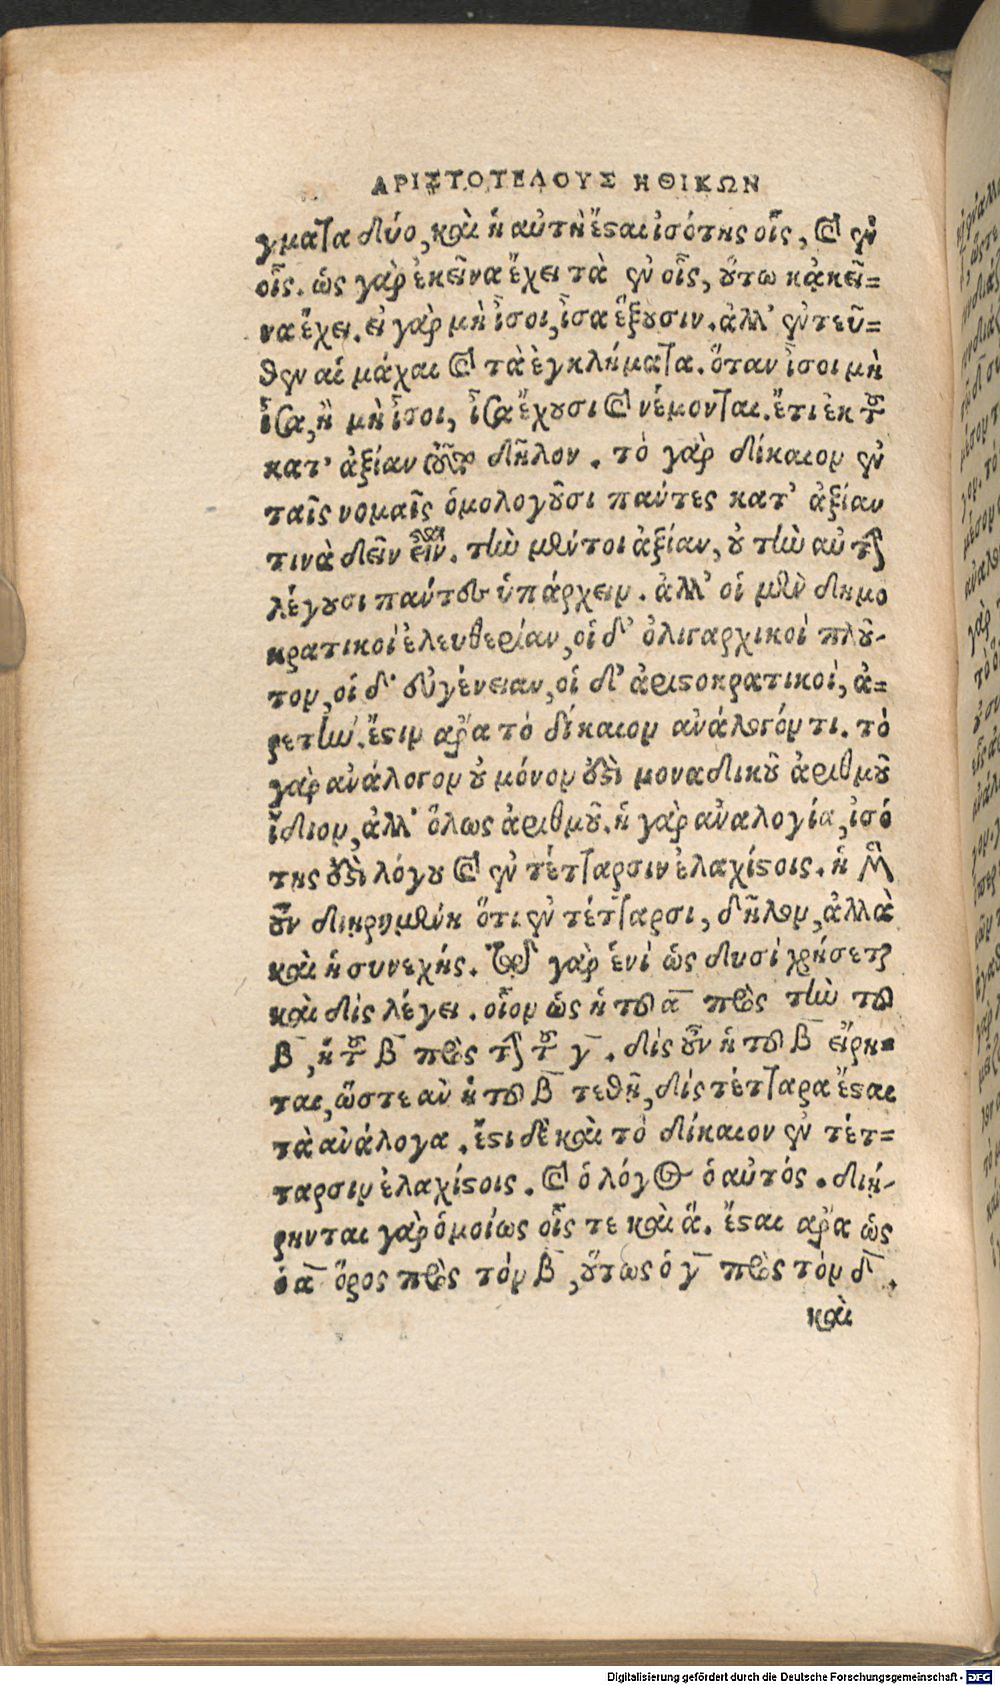 ΑΡΙΣΤΟΤΕΛΟΥΣ ΗΘΙΚΩΝ
γματα δύο, καὶ ἡ αὐτὴ ἔσται ἰσότης οἷς, καὶ ἐν
οἷς. ὡς γὰρ ἐκεῖνα ἔχει τὰ ἐν οἷς, οὕτω κἀκεῖ=
να ἔχει. εἰ γὰρ μὴ ἴσοι, ἴσα ἕξουσιν. ἀλλ' ἐντεῦ=
θεν αἱ μάχαι καὶ τὰ ἐγκλήματα. ὅταν ἴσοι μὴ
ἴσα, ἢ μὴ ἴσοι, ἴσα ἔχουσι καὶ νέμονται. ἔτι ἐκ τοῦ
κατ' ἀξίαν τοῦτο δῆλον. τὸ γὰρ δίκαιον ἐν
ταῖς νομαῖς ὁμολογοῦσι πάντες κατ' ἀξίαν
τινὰ δεῖν εἶναι. τὴν μέντοι ἀξίαν, οὐ τὴν αὐτὴν
λέγουσι πάντες ὑπάρχειν. ἀλλ' οἱ μὲν δημο
κρατικοὶ ἐλευθερίαν, οἱ δ' ὀλιγαρχικοὶ πλοῦ-
τον, οἱ δ' εὐγένειαν, οἱ δ' ἀριστοκρατικοί, ἀ=
ρετήν. ἔστιν ἄρα τὸ δίκαιον ἀνάλογόν τι. τὸ
γὰρ ἀνάλογον οὐ μόνον ἐστὶ μοναδικοῦ ἀριθμοῦ
ἴδιον, ἀλλ' ὅλως ἀριθμοῦ. ἡ γὰρ ἀναλογία, ἰσό
της ἐστὶ λόγου καὶ ἐν τέτταρσιν ἐλαχίστοις. ἡ μὲν
οὖν διῃρημένη ὅτι ἐν τέτταρσι, δῆλον, ἀλλὰ
καὶ ἡ συνεχής. τῷ γὰρ ἑνὶ ὡς δυσὶ χρήσεται
καὶ δὶς λέγει. οἷον ὡς ἡ τοῦ α πρὸς τὴν τοῦ
β, ἡ τοῦ β πρὸς τὴν τοῦ γ. δὶς οὖν ἡ τοῦ β εἴρη=
ται, ὥστε ἂν ἡ τοῦ β τεθῇ, δὶς τέτταρα ἔσται
τὰ ἀνάλογα. ἔστι δὲ καὶ τὸ δίκαιον ἐν τέτ=
ταρσιν ἐλαχίστοις. καὶ ὁ λόγος ὁ αὐτός. διῄ-
ρηνται γὰρ ὁμοίως οἷς τε καὶ ἅ. ἔσται ἄρα ὡς
ὁ α ὅρος πρὸς τὸν β, οὕτως ὁ γ πρὸς τὸν δ.
καὶ
Digitalisierung gefördert durch die Deutsche Forschungsgemeinschaft - DFG